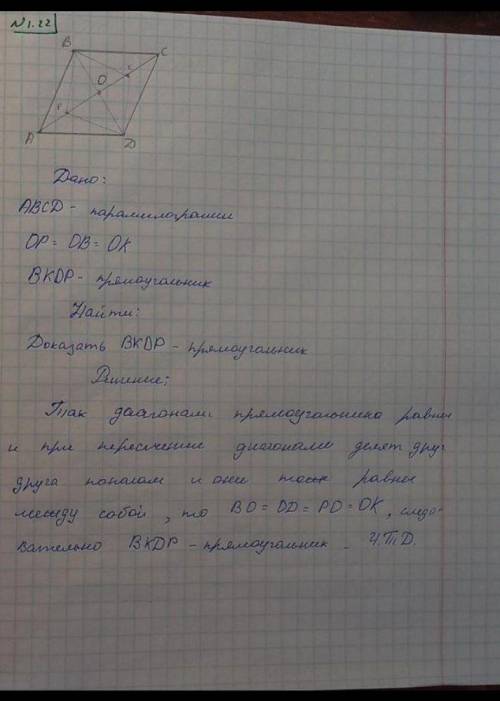 N1.22
B
C
K
O
P
A
D
Дано:
ABCD - параллелограмм
OP = OB = OK
BKDP - прямоугольник
Найти:
Доказать BKDP - прямоугольник
Решение:
Так диагонали прямоугольника равны
и при пересечение диагонали делят друг
друга попалам и они тоже равны
между собой, то BO = OD = PO = OK, следо-
вательно BKDP - прямоугольник. Ч.Т.Д.